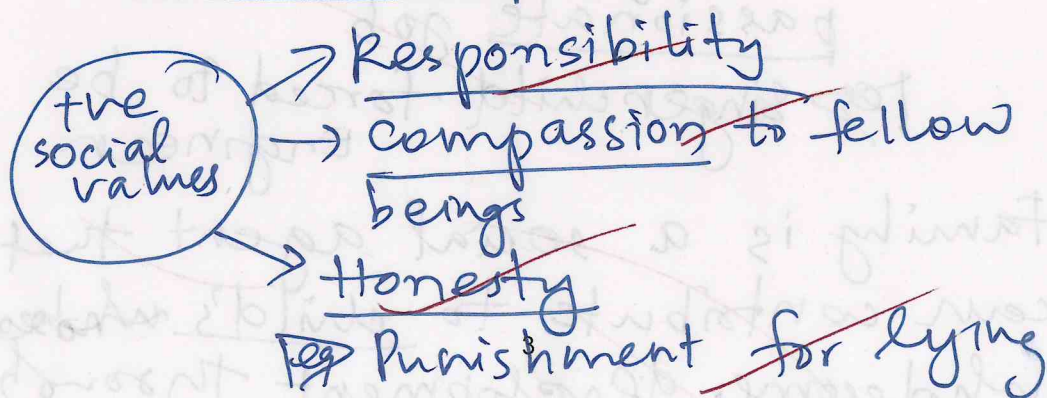 +ve
social
values
Responsibility
compassion to fellow
beings
Honesty
eg Punishment for lying